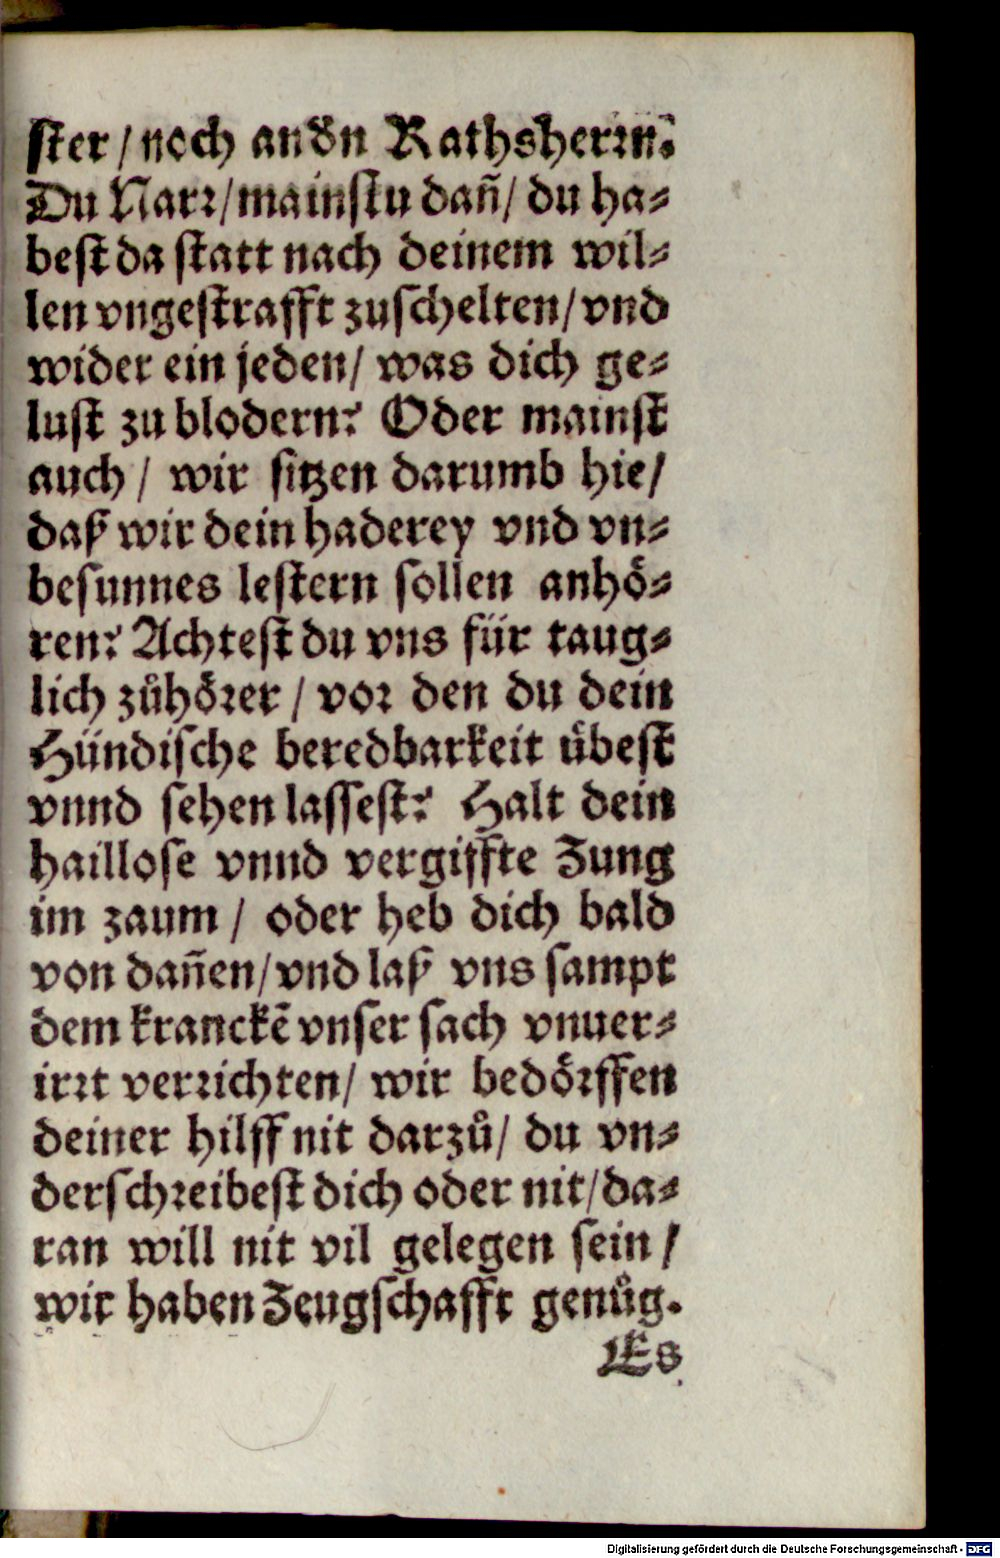 ſter / noch andn̄ Rathsherꝛn?
Du Narꝛ / mainſtu dañ / du ha⸗
beſt da ſtatt nach deinem wil⸗
len vngeſtrafft zuſchelten / vnd
wider ein jeden / was dich ge⸗
luſt zu blodern? Oder mainſt
auch / wir ſitzen darumb hie /
daß wir dein haderey vnd vn⸗
beſunnes leſtern ſollen anhoͤ⸗
ren? Achteſt du vns für taug⸗
lich zuͦhoͤꝛer / voꝛ den du dein
Hündiſche beredbarkeit uͤbeſt
vnnd ſehen laſſeſt? Halt dein
hailloſe vnnd vergiffte Zung
im zaum / oder heb dich bald
von dañen / vnd laß vns ſampt
dem kranckē vnſer ſach vnuer⸗
irꝛt verꝛichten / wir bedoͤꝛffen
deiner hilff nit darzuͦ / du vn⸗
derſchꝛeibeſt dich oder nit / da⸗
ran will nit vil gelegen ſein /
wir haben Zeugſchafft genuͦg.
Es
Digitalisierung gefördert durch die Deutsche Forschungsgemeinschaft - DFG